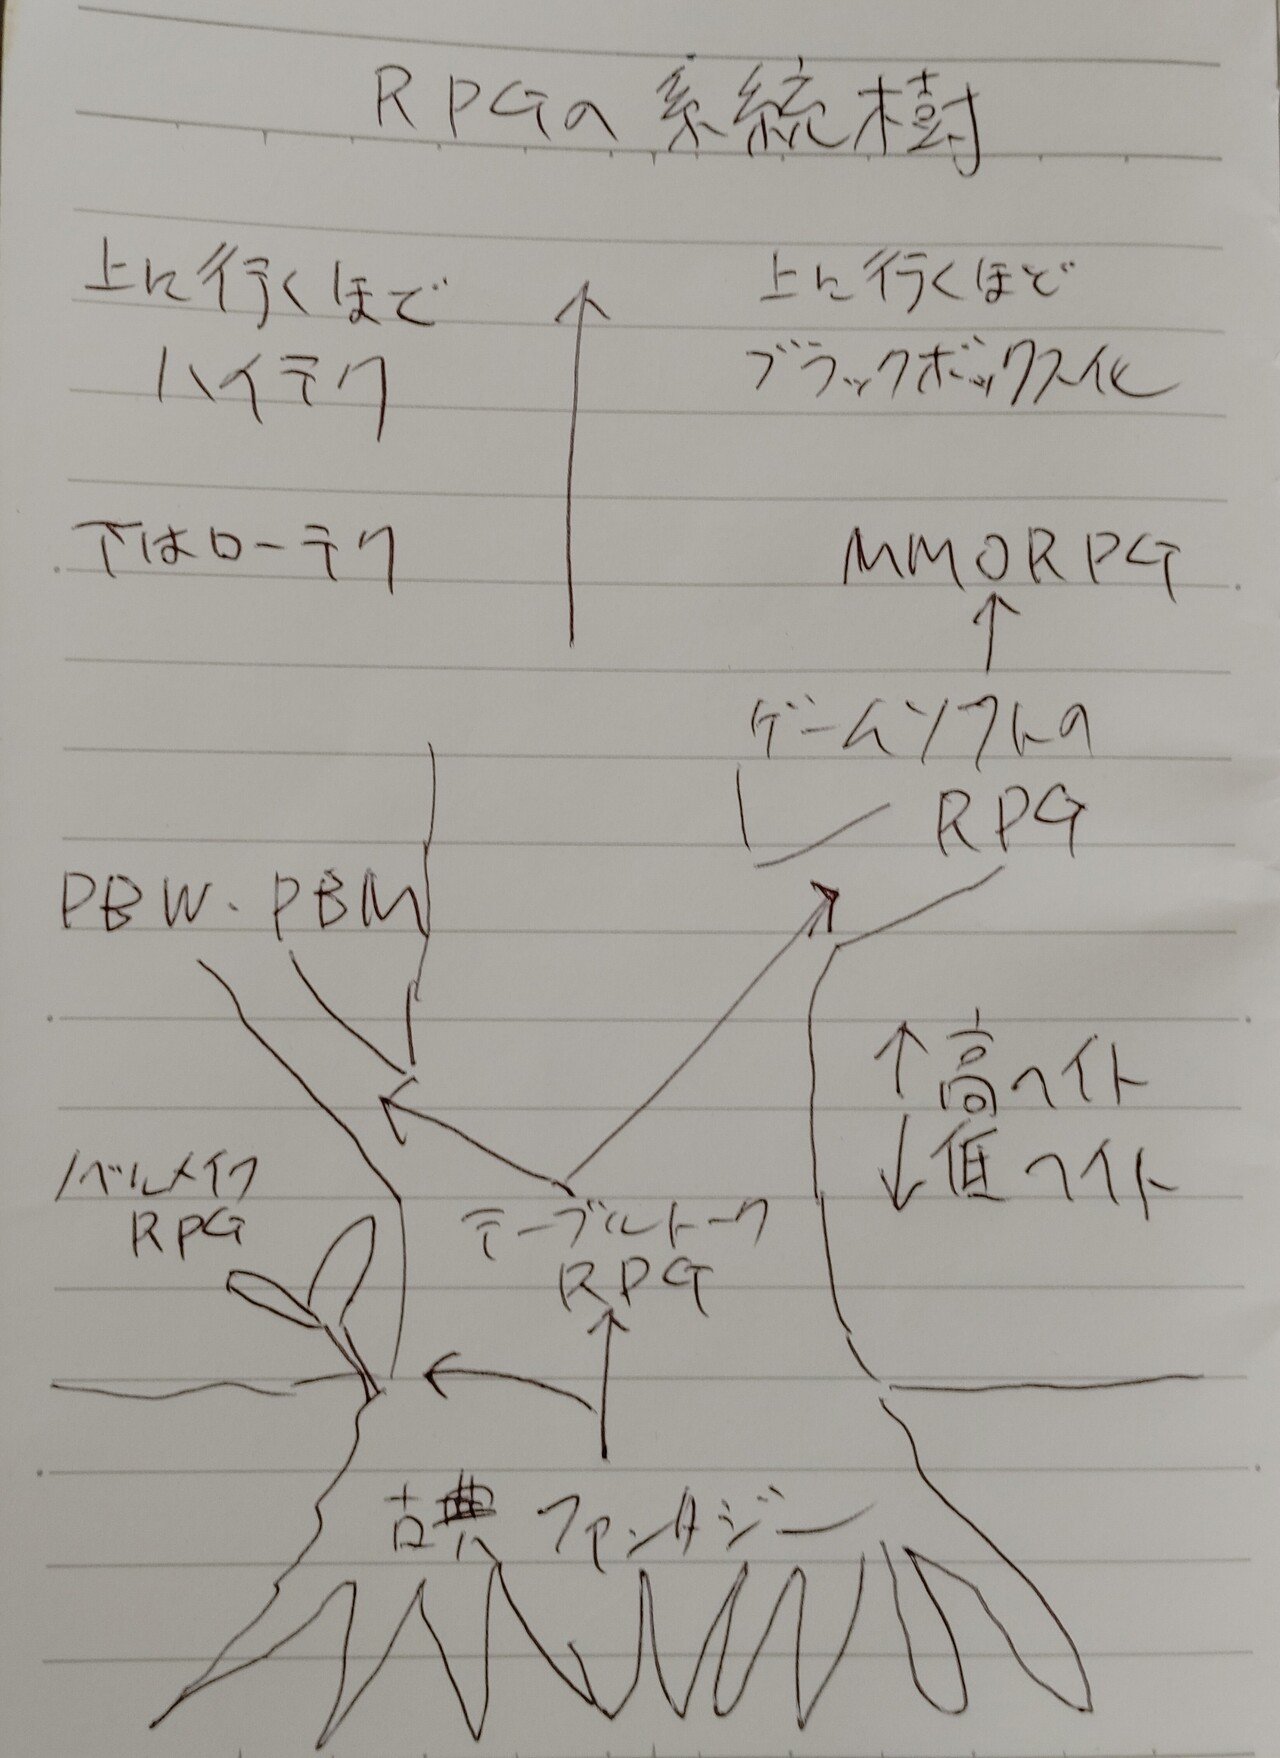 RPGの系統樹
上に行くほど
ハイテク
下はローテク
上に行くほど
ブラックボックス化
MMORPG
ゲームソフトの
RPG
PBW・PBM
↑高ヘイト
↓低ヘイト
ノベルメイク
RPG
テーブルトーク
RPG
古典ファンタジー